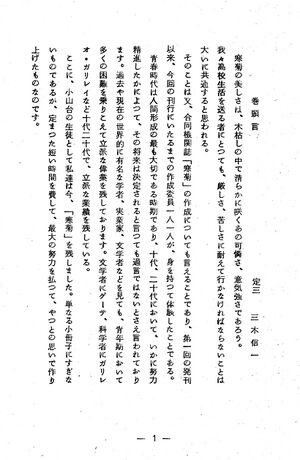 巻頭言
定三 三木信一
寒菊の美しさは、木枯しの中で清らかに咲くあの可憐さ、意気強さであろう。
我々高校生活を送る者にとつても、厳しさ、苦しさに耐えて行かなければならないことは
大いに共通すると思われる。
そのことは又、合同機関誌「寒菊」の作成についても言えることであり、第一回の発刊
以来、今回の刊行にいたるまでの作成委員一人一人が、身を持つて体験したことである。
青春時代は人間形成の最も大切である時期であり、十代、二十代において、いかに努力
精進したかによつて、その将来は決定されると言つても過言ではないとさえ言われており
ます。過去や現在の世界的に有名な学者、実業家、文学者などを見ても、青年期において
多くの困難を乗りこえて立派な偉業を残しております。文学者にゲーテ、科学者にガリレ
オ・ガリレイなど十代二十代で、立派な業績を残している。
ここに、小山台の生徒として私達は今、「寒菊」を残しました。単なる小冊子にすぎな
いものであるが、定まつた短い時間を費して、最大の努力を払つて、やつとの思いで作り
上げたものなのです。
— 1 —